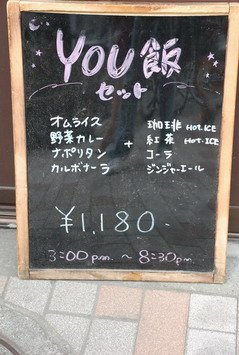 YOU飯
セット
オムライス
野菜カレー
ナポリタン
カルボナーラ
+
珈琲 HOT.ICE
紅茶 HOT.ICE
コーラ
ジンジャーエール
¥1,180.
3:00 p.m. ~ 8:30 p.m.